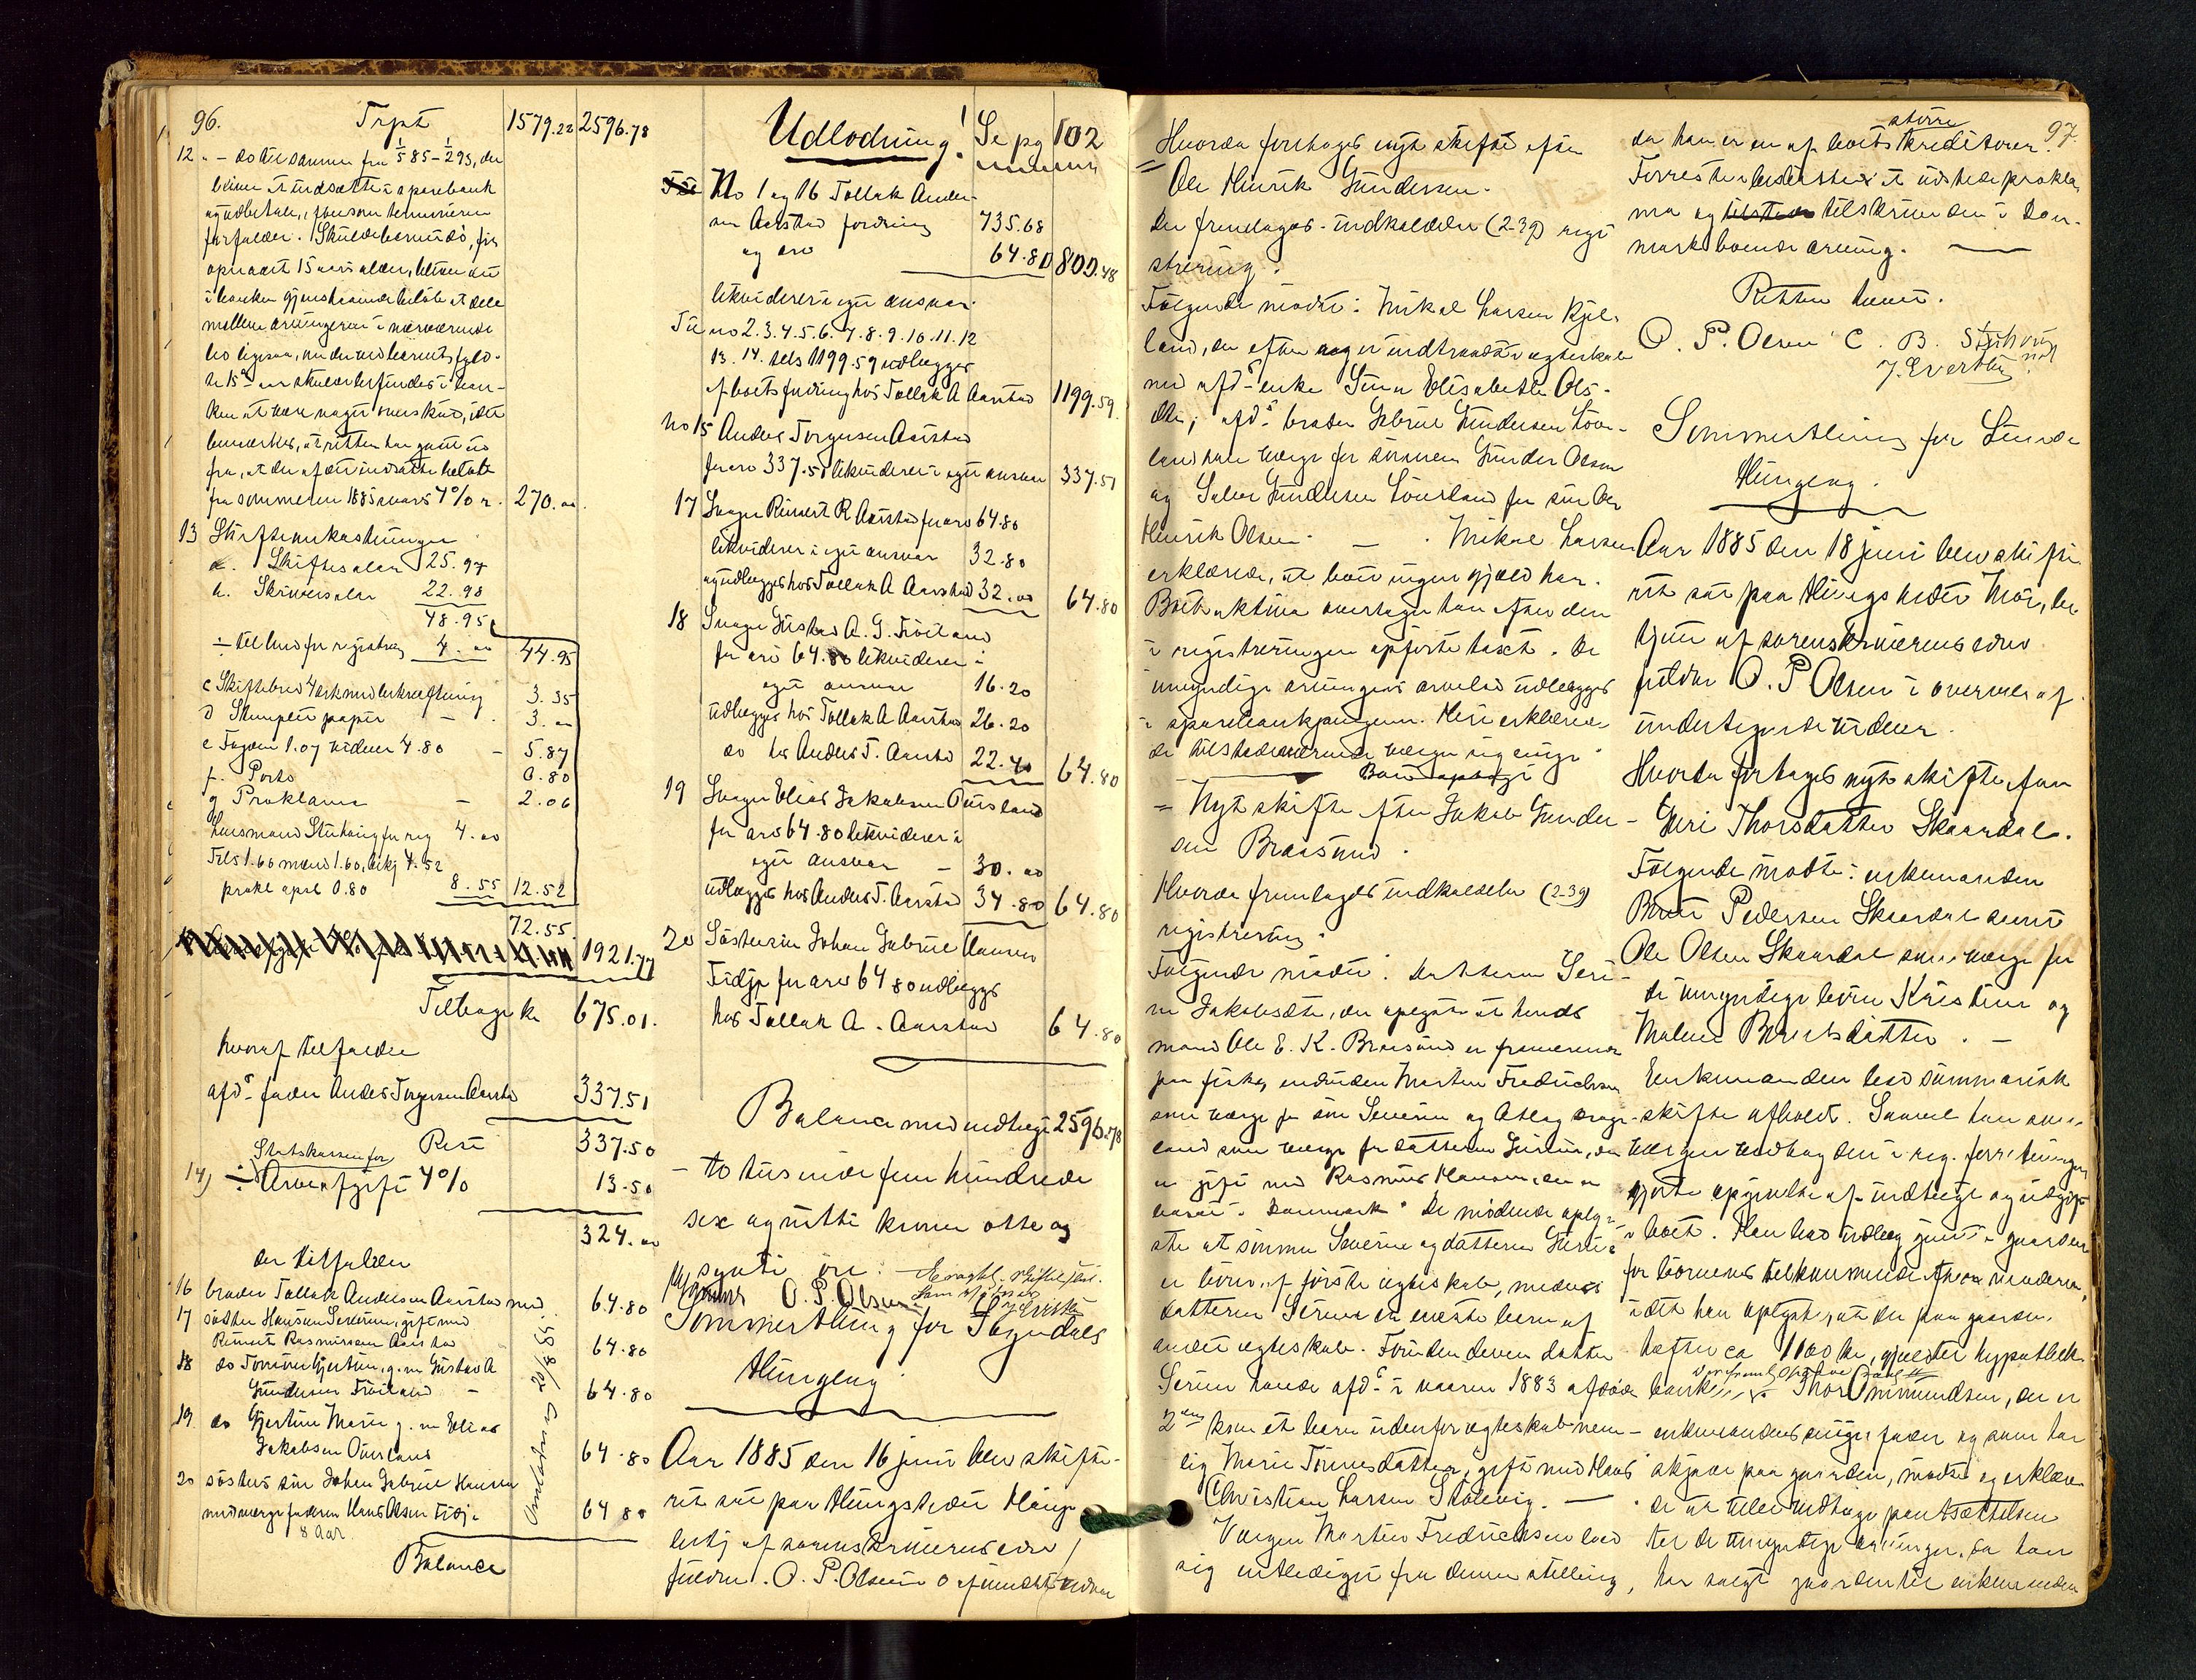 96.
Trpt 1579.22 2596.78
12 " - do til samme fra 1/5 85 - 1/2 93, der
bliver at indsætte i sparebank
og udbetale, eftersom terminerne
forfalder. Skulde barnet dø, før
opnaaet 15 aars alder, bliver det
i banken gjenstaaende beløb at dele
mellem arvingerne i nærværende
bo ligesaa, om der ved barnets fyld-
te 15de aar skulde befindes i ban-
ken at være noget overskud, idet
bemærkes, at retten har gaaet ud
fra, at der af det indsatte beløb
fra sommeren 1885 svares 4% r. 270.00
13 Skifteomkostninger
a. Skiftesalær 25.97
b. Skriversalær 22.98
48.95
÷ tilbud for registrering 4.00 44.95
c Skiftebrev 4 ark med bekræftning 3.35
d Stemplet papir - 3.00
e Fogden 1.07 vidner 4.80 - 5.87
f. Porto 0.80
g Proklama - 2.06
Lensmand Stuhaug for reg 4.00
Tils 1.60 mænd 1.60, bekj 4.52
prokl opsl 0.80 8.55 12.52
72.55
1921.77
Tilbage kr 675.01.
hvoraf tilfalder
afds fader Anders Torgersen Aarstad 337.51
Rest 337.50
Statskassen for
14) ÷ Arveafgift 4% 13.50
324.00
der tilfalder
16 broder Tollak Andersen Aarstad med 64.80
17 søster Hansine Severine, gift med
Reinert Rasmussen Aarstad 64.80
18 do Tomine Gjertine, g. m Gustav A
Gundersen Frøiland - 64.80
19 do Gjertine Marie g. m Elias
Jakobsen Ouesland 64.80
20 søsters søn Johan Gabriel Hansen
med værge faderen Hans Olsen Fidje 64.80
8 Aar.
Balance
Udlodning! Se pg 102
Til No 1 og 16 Tollak Ander-
sen Aarstad fordring 735.68
og arv 64.80 800.48
likviderer i eget ansvar.
Til no 2.3.4.5.6.7.8.9.10.11.12
13.14. tels 1199.59 udlægges
af boets fordring hos Tollak A Aarstad 1199.59
no 15 Anders Torgersen Aarstad
for arv 337.51 likviderer i eget ansvar 337.51
17 Svoger Reinert R Aarstad for arv 64.80
likviderer i eget ansvar 32.80
og udlægges hos Tollak A Aarstad 32.00 64.80
18 Svoger Gustav A. G. Frøiland
for arv 64.80 likviderer i
eget ansvar 16.20
udlægges hos Tollak A Aarstad 26.20
do hos Anders T. Aarstad 22.40 64.80
19 Svoger Elias Jakobsen Ouesland
for arv 64.80 likviderer i
eget ansvar - 30.00
udlægges hos Anders T. Aarstad 34.80 64.80
20 Søstersøn Johan Gabriel Hansen
Fidje for arv 64 80 udlægges
hos Tollak A. Aarstad 64.80
Balance med indtægt 2596.78
- to tusinde fem hundrede
sex og nitti kroner otte og
sytti øre.
O. P. Olsen
Sommerthing for Sogndals
thinglag
Aar 1885 den 16 juni blev skifte-
ret sat paa thingstedet Hauge
betj af sorenskriverens edsv
fuldm. O. P. Olsen o af undert vidner
97.
Hvorda foretoges nyt skifte efter
Ole Henrik Gundersen.
Der fremlagdes indkaldelse (2-39) regi
strering.
Følgende mødte: Mikal Larsen Kjel-
land, der efter sig er indtraadt i ægteskab
med afds enke Sina Elisabeth Ols-
dtr; afds broder Gabriel Gundersen Løve-
land som værge for sønnen Gunder Olsen
og Salve Gundersen Løveland for søn Ole
Henrik Olsen. — Mikal Larsen
erklærede, at boet ingen gjæld har.
Boets aktiva overtager han efter den
i registreringen opførte taxt. De
umyndige arvingers arvelod udlægges
i sparebankpengene. Heri erklærede
de tilstedeværende værger sig enige
Boet optaget
= Nyt skifte efter Jakob Gunder-
sen Braasund.
Hvorda fremlagdes indkaldelse (2-39)
registrering.
Følgende mødte: Datteren Seri-
ne Jakobsdtr, der oplyste at hendes
mand Ole E. K. Braasund er fraværende
paa fiske, endvidere Morten Fredriksen
som værge for søn Severin og Atlag Drage-
land som værge for datteren Gurine, der
er gift med Rasmus Hansen, der er
bosat i Danmark. De mødende oply-
ste at sønnen Severin og datteren Gurine
er børn af første ægteskab, medens
datteren Serine er eneste barn af
andet ægteskab. Foruden denne datter
Serine havde afds i vaaren 1883 afdøde
2den kone et barn udenfor ægteskab nem-
lig Marie Tønnesdatter, gift med Hans
Christian Larsen Stølevig. —
Værgen Morten Fredricksen bad
sig entlediget fra denne stilling,
da han er en af boets større kreditorer.
Forretten besluttede at udstede prokla-
ma og tilskrive den i Dan-
mark boende arving. —
Retten hævet.
O. P. Olsen C. B. Stuhaug
J. Evertsen
Sommerthing for Lunde
thinglag.
Aar 1885 den 18 juni blev skifte-
ret sat paa thingstedet Moi, be-
tjent af sorenskriverens edsv
fuldm O. P. Olsen i overvær af
undertegnede vidner.
Hvorda foretoges nyt skifte efter
Guri Thorsdatter Skaardal.
Følgende mødte: enkemanden
Berent Pedersen Skaardal samt
Ole Olsen Skaardal som værge for
de umyndige børn Kristine og
Malene Berentsdatter. —
Enkemanden bad summarisk
skifte afholdt. Saavel han som
værgen vedtog den i reg. forretningen
gjorte opgivelse af indtægt og udgift
i boet. Han bad udlæg givet i gaarden
for børnenes tilkommende efter moderen,
idet han oplyste, at der paa gaarden
hefter ca 1100 kr, gjæld til hypothek-
banken Thor Ommundsen, der er
enkemandens svigerfader og som har
skjøde paa gaarden, mødte og erklære-
de at ville vedtage pantsættelsen
til de umyndige arvinger, da han
har solgt gaarden til enkemanden